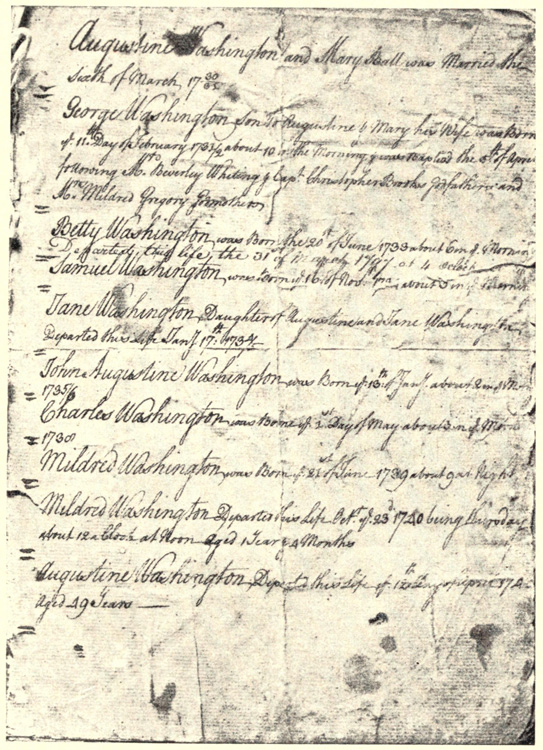 Augustine Washington and Mary Ball was Married the
Sixth of March 17 30/31
George Washington Son to Augustine & Mary his Wife was Born
ye 11th Day of February 1731/2 about 10 in the Morning & was Baptised the 5th of April
following Mr Beverley Whiting & Capt Christopher Brooks Godfathers and
Mrs Mildred Gregory Godmother
Betty Washington was Born the 20th of June 1733 about 6 in ye Morning
Departed this life, the 31 of March 1797 at 4 oClock
Samuel Washington was Born ye 16 of Novr about 3 in ye Morning
Jane Washington Daughter of Augustine and Jane Washington
Departed this Life Janry 17th 1734/5
John Augustine Washington was Born ye 13th of Janry about 2 in ye Morn
1735/6
Charles Washington was Borne ye 1st Day of May about 3 in ye Morn
1738
Mildred Washington was Born ye 21st of June 1739 about 9 at Night
Mildred Washington Departed this Life Octr ye 23d 1740 being Thursday
about 12 a Clock at Noon Aged 1 Year & 4 Months
Augustine Washington Departed this Life ye 12th Day of April 174
Aged 49 Years